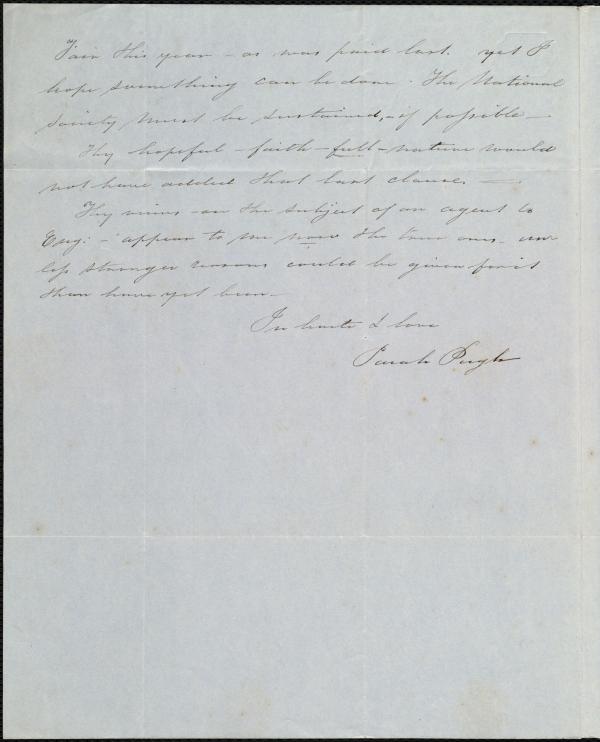 Fair this year - as was paid last. yet I
hope something can be done. The National
Society must be sustained, - if possible -
Thy hopeful - faith - full - nature would
not have added that last clause. -
Thy views - on the subject of an agent to
Eng: - appear to me now the true ones - un
less stronger reasons could be given for it
than have yet been -
In haste & love
Sarah Pugh